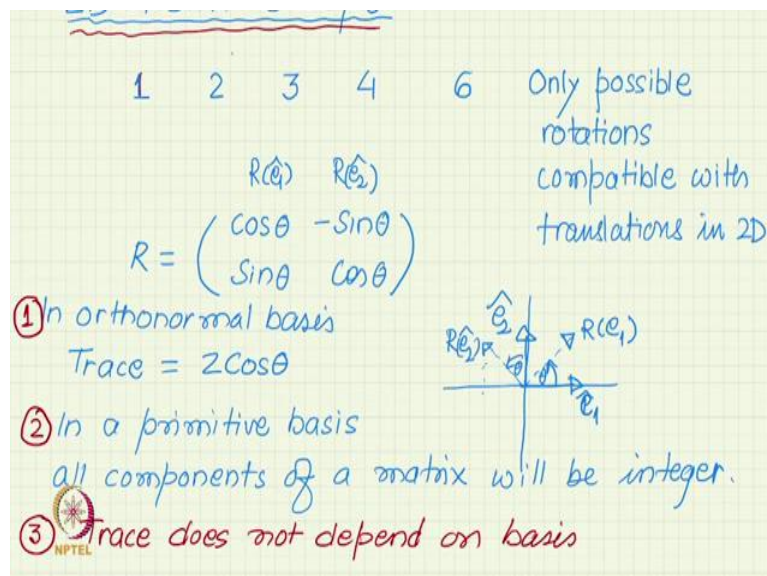 1 2 3 4 6 Only possible
rotations
compatible with
translations in 2D
R(ê₁) R(ê₂)
R = ( cosθ -Sinθ
Sinθ Cosθ )
① In orthonormal basis
Trace = 2Cosθ
ê₂
R(ê₂) R(e₁)
θ θ
ê₁
② In a primitive basis
all components of a matrix will be integer.
③ Trace does not depend on basis
NPTEL